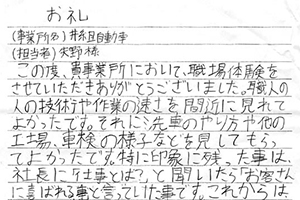 お礼
(事業所名)井組自動車
(担当者)矢野様
この度、貴事業所において、職場体験を
させていただきありがとうございました。職人の
人の技術や作業の速さを間近に見れて
よかったです。それに洗車のやり方や他の
工場、車検の様子などを見してもらっ
てよかったです。特に印象に残った事は、
社長に「仕事とは?」と聞いたら「お客さん
に喜ばれる事と言っていた事です。これからは、